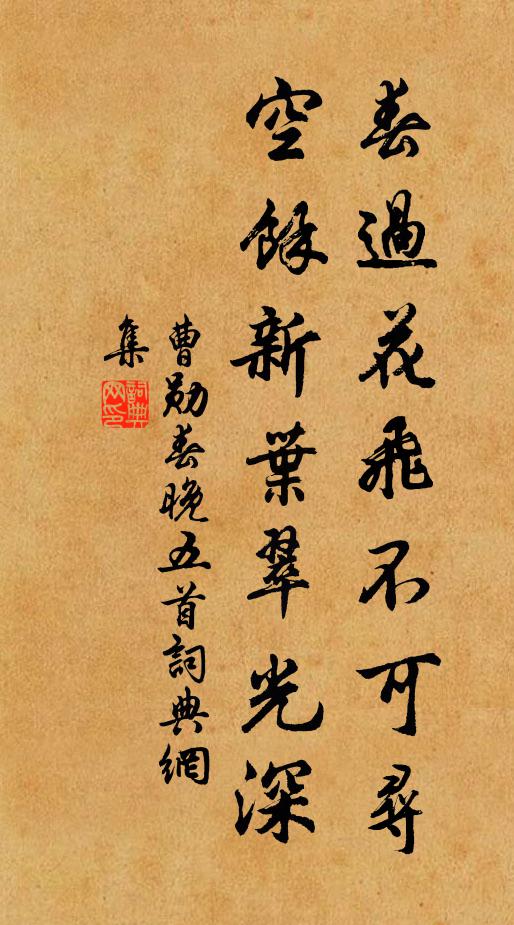 春過花飛不可尋
空餘新葉翠光深
曹勛春晚五首詞典網
集
詞典網印